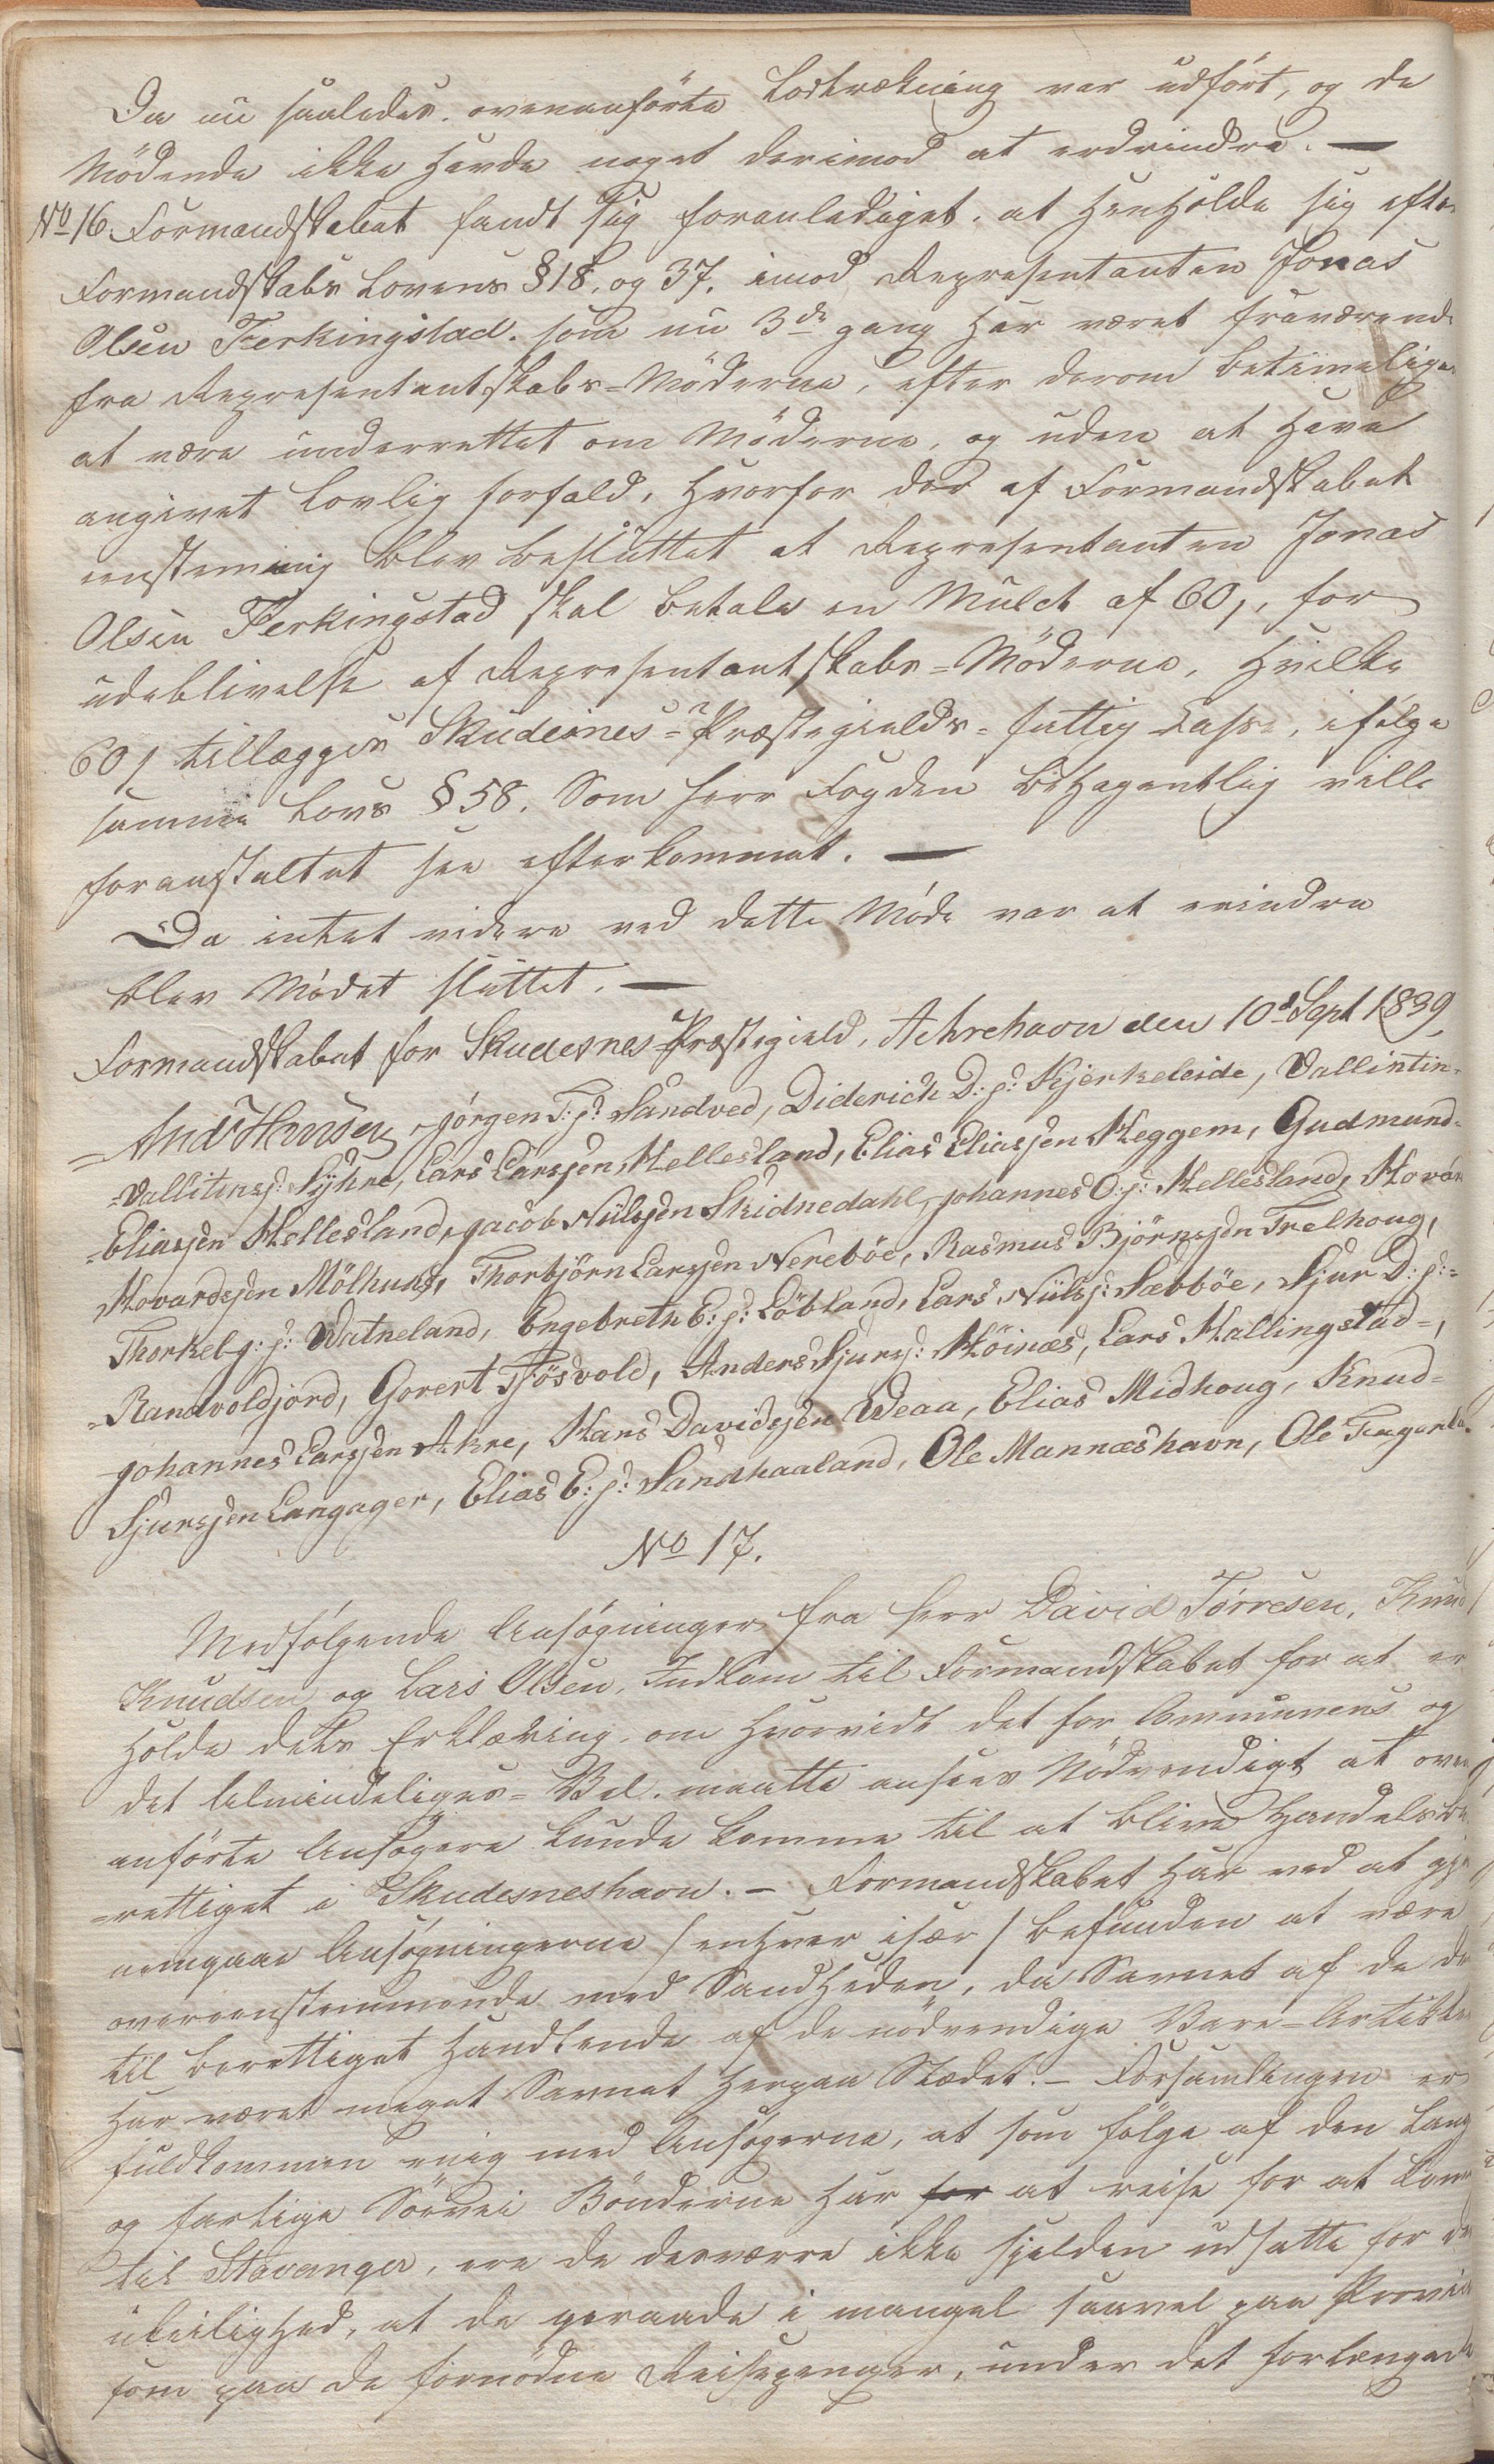 Da nu saaledes ovenanførte Lodtrækning var udført, og de
Mödende ikke havde noget derimod at erdrindre. —
No 16. Formandskabet fandt sig foranlediget at henholde sig efter
Formandskabs Lovens § 18, og 37. imod Representanten Jonas
Olsen Ferkingstad. som nu 3de gang har været fraværende
fra Representantskabs-Möderne, efter derom betimeligen
at være underrettet om Möderne, og uden at have
angivet Lovlig forfald, hvorfor der af Formandskabet
eenstemmig blev besluttet at Representanten Jonas
Olsen Ferkingstad skal betale en Mulct af 60 ,, for
udeblivelse af Representantskabs-Möderne, hvilke
60 tillægges Skudesnes-Præstegjelds-fattig Casse, ifølge
samme Lovs § 58. Som herr Fogden behagentlig ville
foranstaltet see efterkommet. —
Da intet videre ved dette Møde var at erindre
blev Mødet sluttet. —
Formandskabet for Skudesnes-Præstegield, Aehrehavn den 10de Sept 1839
And Hansen, Jörgen T:s: Sandved, Diderich D:s: Kjerkeleide, Vallintin-
-Vallitins: Syhre, Lars Larssen Hellesland, Elias Eliassen Heggem, Gudmund-
-Eliassen Hellesland, Jacob Nilssen Skidnedahl, Johannes O:s: Hellesland, Hovar
Hovardssen Mölhuus, Thorbjörn Larssen Nereböe, Rasmus Björnssen Trelhoug,
Thorkel G:s: Watneland, Engebreth E:s: Löbland, Lars Niils: Sæbböe, Sjur D:s:-
-Randvoldjord, Govert Tjösvold, Anders Sjurs: Höinæs, Lars Hallingstad-,
Johannes Larssen Akre, Hans Davidssen Weaa, Elias Midhoug, Knud-
Sjurssen Langager, Elias E:s: Sandhaaland, Ole Mannæshavn, Ole
No 17.
Medfølgende Ansøgninger fra herr David Tørresen, Knud
Knudsen og Lars Olsen, Indkom til Formandskabet for at er
holde dets Erklæring, om hvorvidt det for Communens og
det Almindeliges-Vel maatte ansees Nödvendigt at oven
anførte Ansøgere kunde komme til at blive Handelsbe
-rettiget i Skudesneshavn. — Formandskabet har ved at gje
nemgaae Ansøgningerne / enhver især / befunden at være
overeenstemmende med Sandheden, da Savnet af de der
til berettiget Handlende af de nödvendige Vare-Artikler
har været meget Savnet herpaa Stædet. — Forsamlingen er
fuldkommen enig med Ansøgerne, at som følge af den Lang
og farlige Söevei Bönderne har for at reise for at kom
til Stavanger, ere de desværre ikke sjelden udsatte for den
ubeilighed, at de geraade i mangel saavel paa Provia
som paa de fornødne Reisepenger, under det forlængede